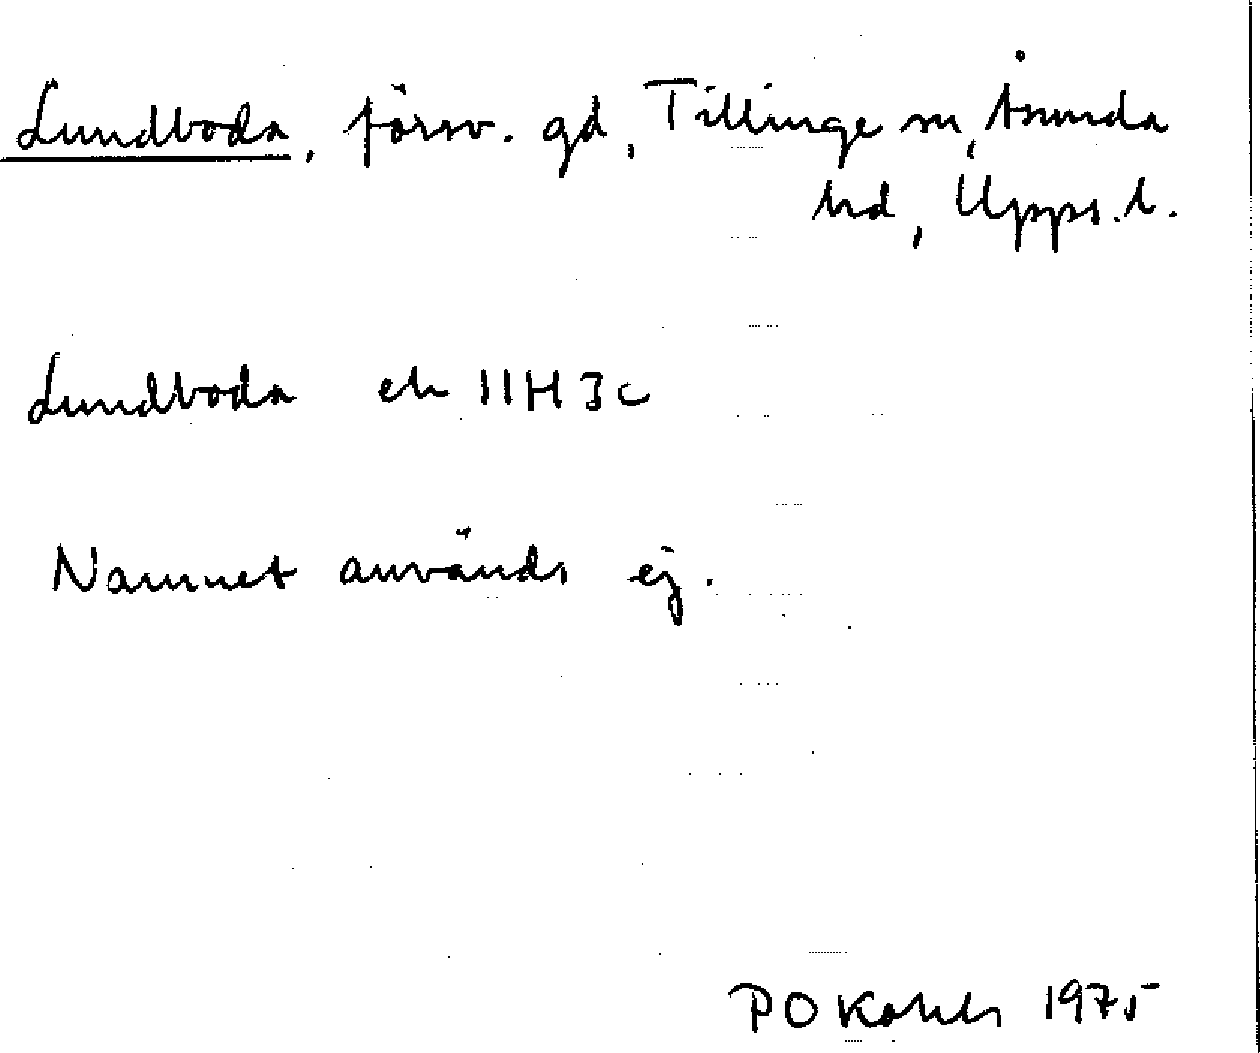 Lundboda, försv. gd, Tillinge sn, Åsunda
hd, Upps. l.
Lundboda ek 11H3c
Namnet används ej.
P O Kahls 1975